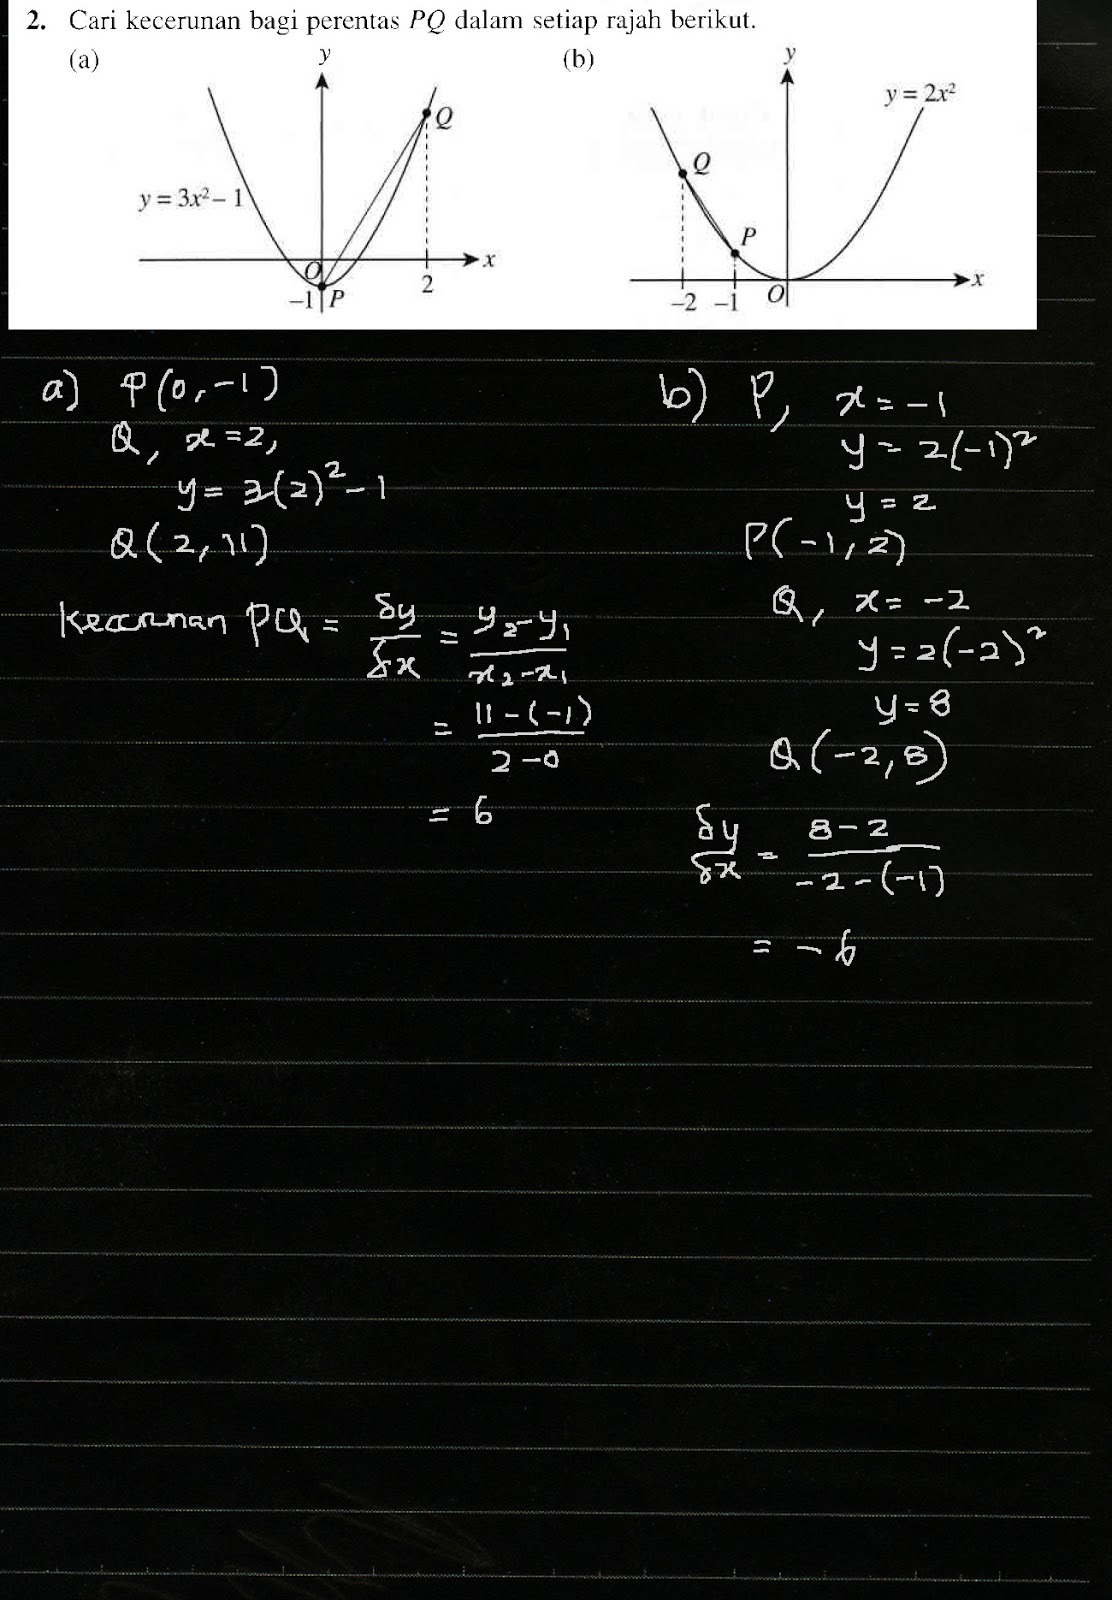 2. Cari kecerunan bagi perentas PQ dalam setiap rajah berikut.
(a)
y
Q
y = 3x² – 1
O
x
–1
P
2
(b)
y
y = 2x²
Q
P
–2 –1
O
x
a) P(0, -1)
Q, x = 2,
y = 3(2)² - 1
Q(2, 11)
Kecerunan PQ = δy/δx = y₂-y₁/x₂-x₁
= 11-(-1)/2-0
= 6
b) P, x = -1
y = 2(-1)²
y = 2
P(-1, 2)
Q, x = -2
y = 2(-2)²
y = 8
Q(-2, 8)
δy/δx = 8-2/-2-(-1)
= -6